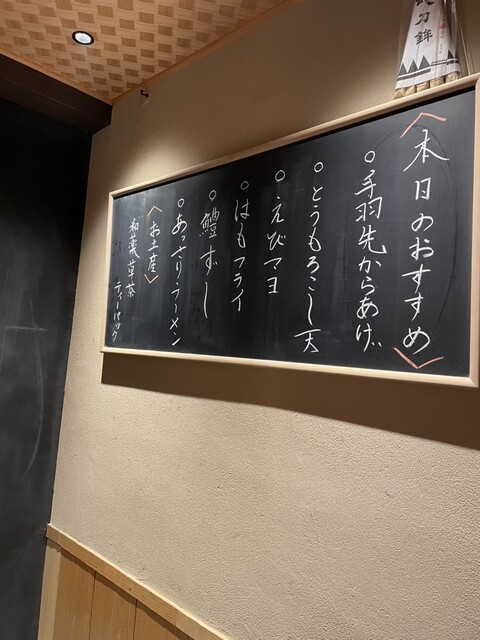 長刀鉾
〈本日のおすすめ〉
○手羽先からあげ
○とうもろこし天
○えびマヨ
○はもフライ
○鱧ずし
○あっさりラーメン
〈お土産〉
和薬草茶
ティーバック